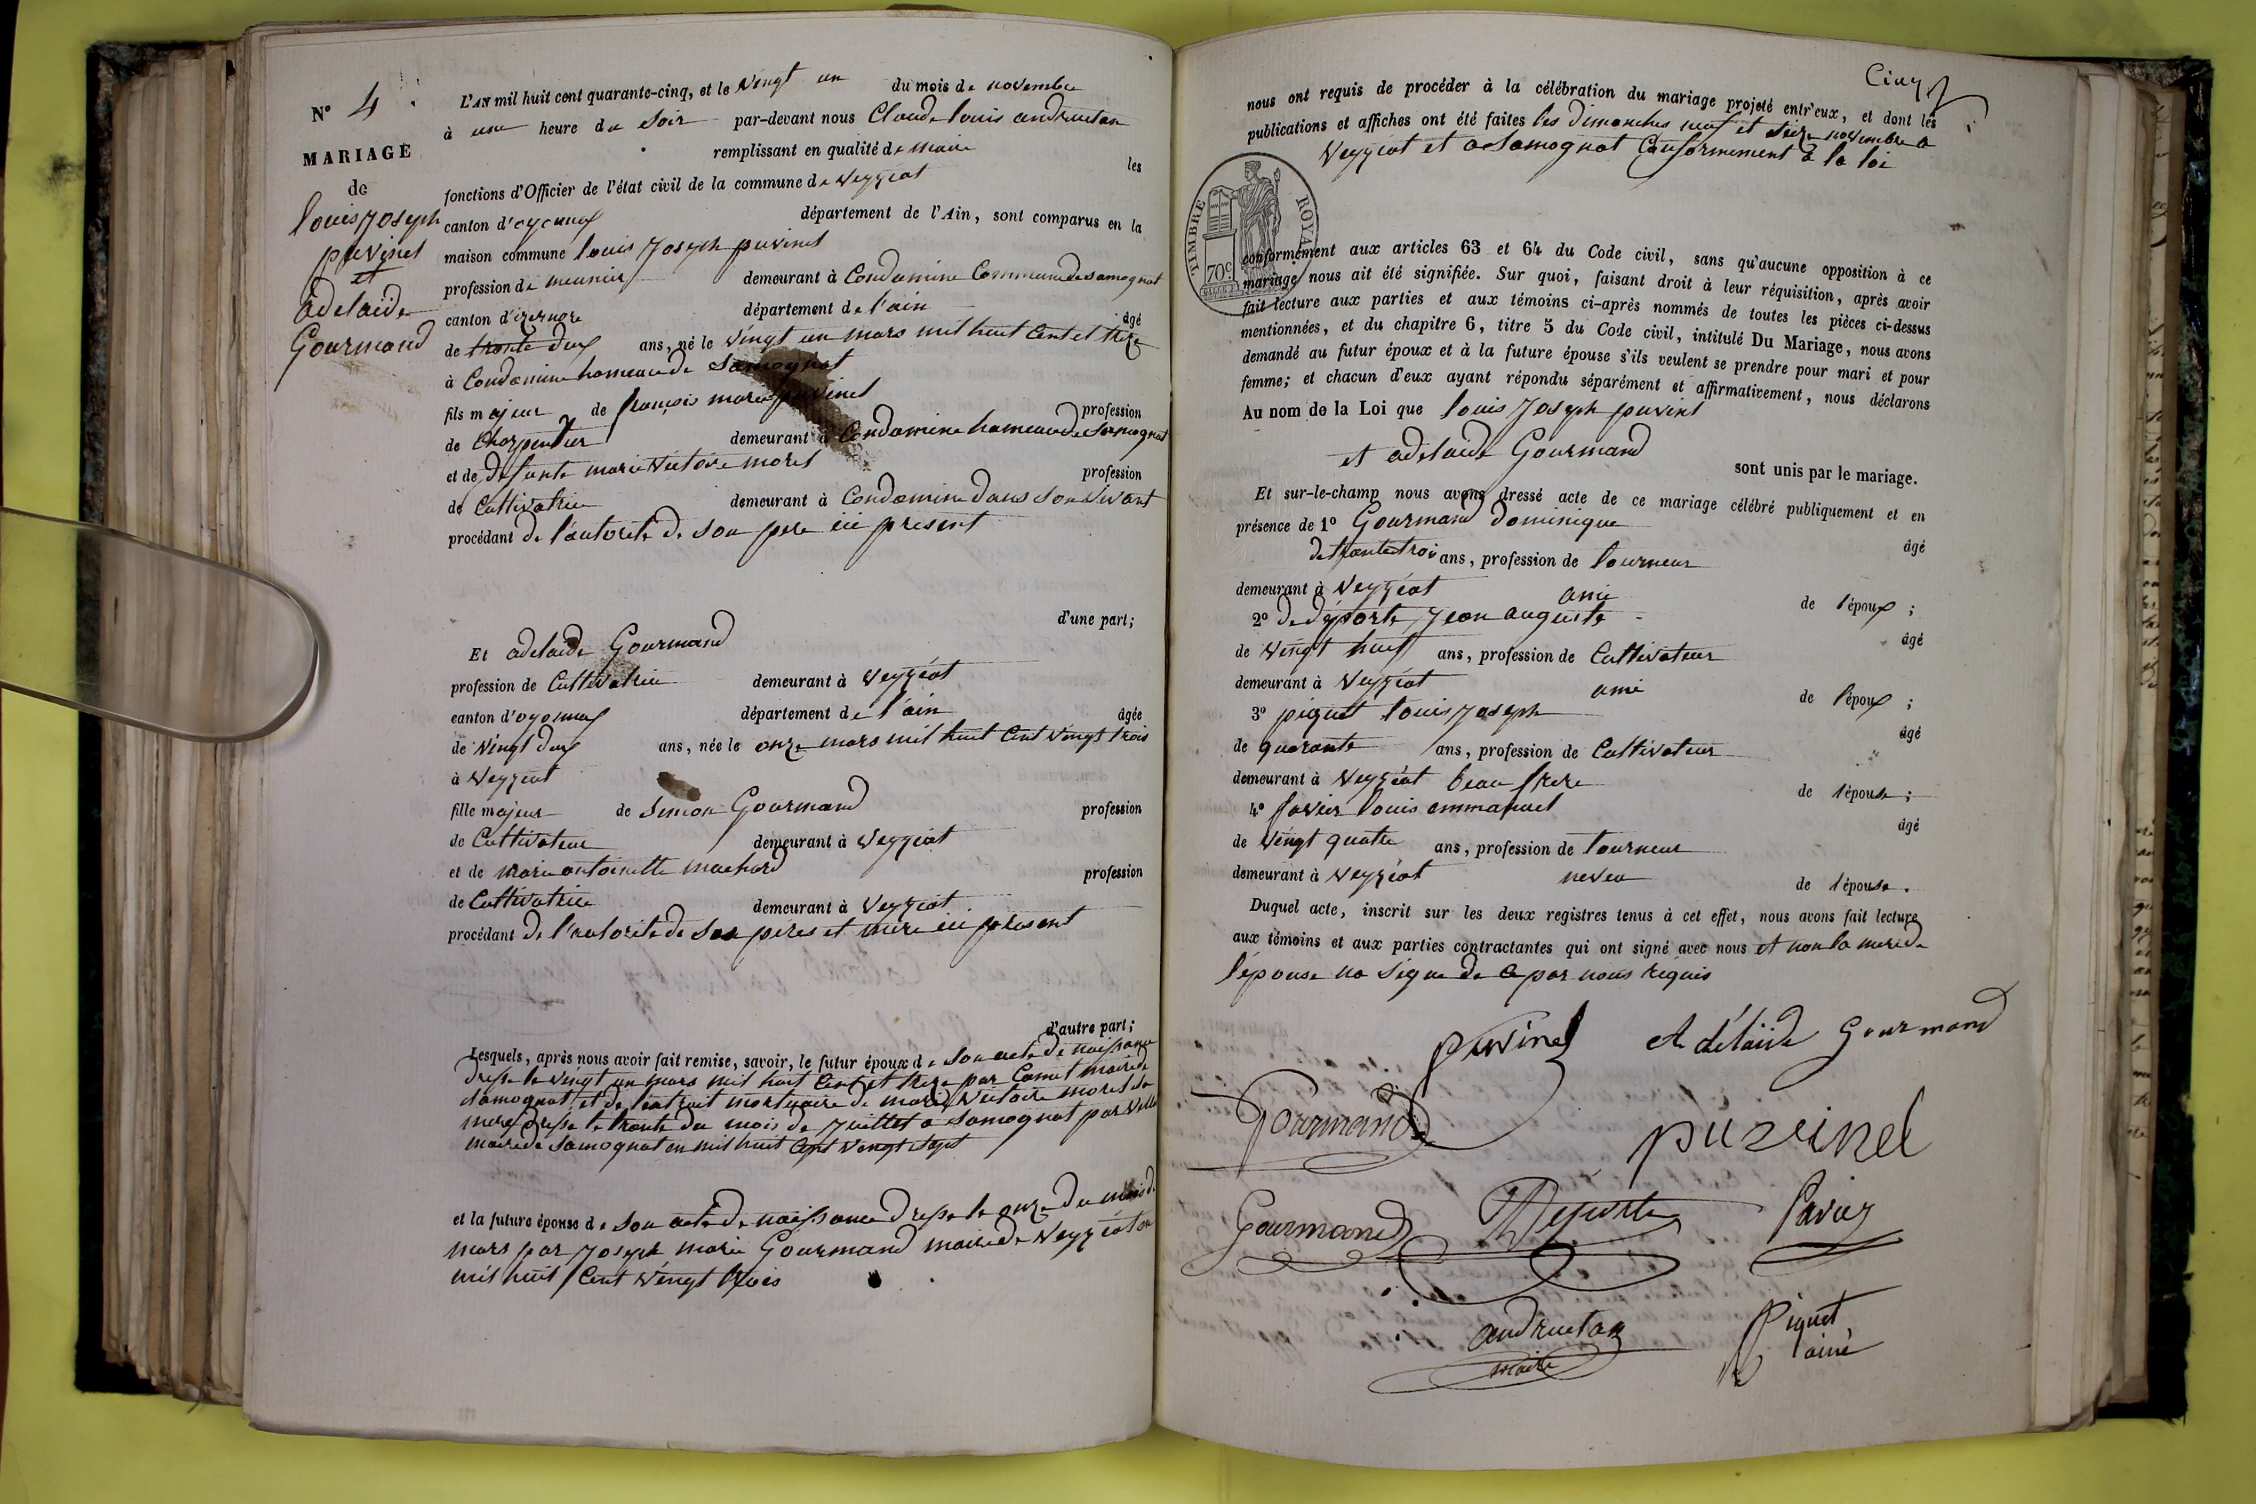 N° 4
MARIAGE
de
louis joseph
puvinel
et
adelaïde
Gourmand
L'AN mil huit cent quarante-cinq, et le vingt un du mois de novembre
à une heure du soir par-devant nous Claude louis andruetan
remplissant en qualité de maire les
fonctions d'Officier de l'état civil de la commune de veyziat
canton d'oyonnax département de l'Ain, sont comparus en la
maison commune louis joseph puvinel
profession de meunier demeurant à Condamine Commune de samognat
canton d'izernore département de l'ain âgé
de trente deux ans, né le vingt un mars mil huit Cent et treze
à Condamine hameau de Samognat
fils majeur de françois marie puvinel profession
de Charpentier demeurant à Condamine hameau de Samognat
et de defunte marie victoire morel profession
de Cultivatrice demeurant à Condamine dans son vivant
procédant de l'autorité de son pere ici present
d'une part;
Et adelaide Gourmand
profession de Cultivatrice demeurant à veyziat
canton d'oyonnax département de l'ain âgée
de vingt deux ans, née le onze mars mil huit Cent vingt trois
à veyziat
fille majeur de simon Gourmand profession
de Cultivateur demeurant à veyziat
et de marie antoinette machard profession
de Cultivatrice demeurant à veyziat
procédant de l'autorité de ses peres et mere ici present
d'autre part;
Lesquels, après nous avoir fait remise, savoir, le futur époux de son acte de naissance
dressé le vingt un mars mil huit Cent et treze par Comet maire de
samognat et de l'extrait mortuaire de marie victoire morel sa
mere dressé le trente du mois de juillet a samognat par
maire de samognat en mil huit Cent vingt sept
et la future épouse de son acte de naissance dressé le onze du mois de
mars par joseph marie Gourmand maire de veyziat en
mil huit Cent vingt trois
Cinq
nous ont requis de procéder à la célébration du mariage projeté entr'eux, et dont les
publications et affiches ont été faites les dimanches neuf et seize novembre a
veyziat et a Samognat Conformement à la loi
TIMBRE ROYAL
70c
conformément aux articles 63 et 64 du Code civil, sans qu'aucune opposition à ce
mariage nous ait été signifiée. Sur quoi, faisant droit à leur réquisition, après avoir
fait lecture aux parties et aux témoins ci-après nommés de toutes les pièces ci-dessus
mentionnées, et du chapitre 6, titre 5 du Code civil, intitulé Du Mariage, nous avons
demandé au futur époux et à la future épouse s'ils veulent se prendre pour mari et pour
femme; et chacun d'eux ayant répondu séparément et affirmativement, nous déclarons
Au nom de la Loi que louis joseph puvinel
et adelaide Gourmand
sont unis par le mariage.
Et sur-le-champ nous avons dressé acte de ce mariage célébré publiquement et en
présence de 1° Gourmand dominique âgé
de trente trois ans, profession de tourneur
demeurant à veyziat ami de l'époux;
2° de déporte jean auguste âgé
de vingt huit ans, profession de Cultivateur
demeurant à veyziat ami de l'époux;
3° piquet louis joseph âgé
de quarante ans, profession de Cultivateur
demeurant à veyziat beau frere de l'épouse;
4° favier louis emmanuel âgé
de vingt quatre ans, profession de tourneur
demeurant à veyziat neveu de l'épouse.
Duquel acte, inscrit sur les deux registres tenus à cet effet, nous avons fait lecture
aux témoins et aux parties contractantes qui ont signé avec nous et non la mere de
l'épouse na signe de ce par nous requis
puvinel Adélaïde Gourmand
Gourmand puvinel
Gourmand Deporte favier
andruetan Piquet
maire ainé